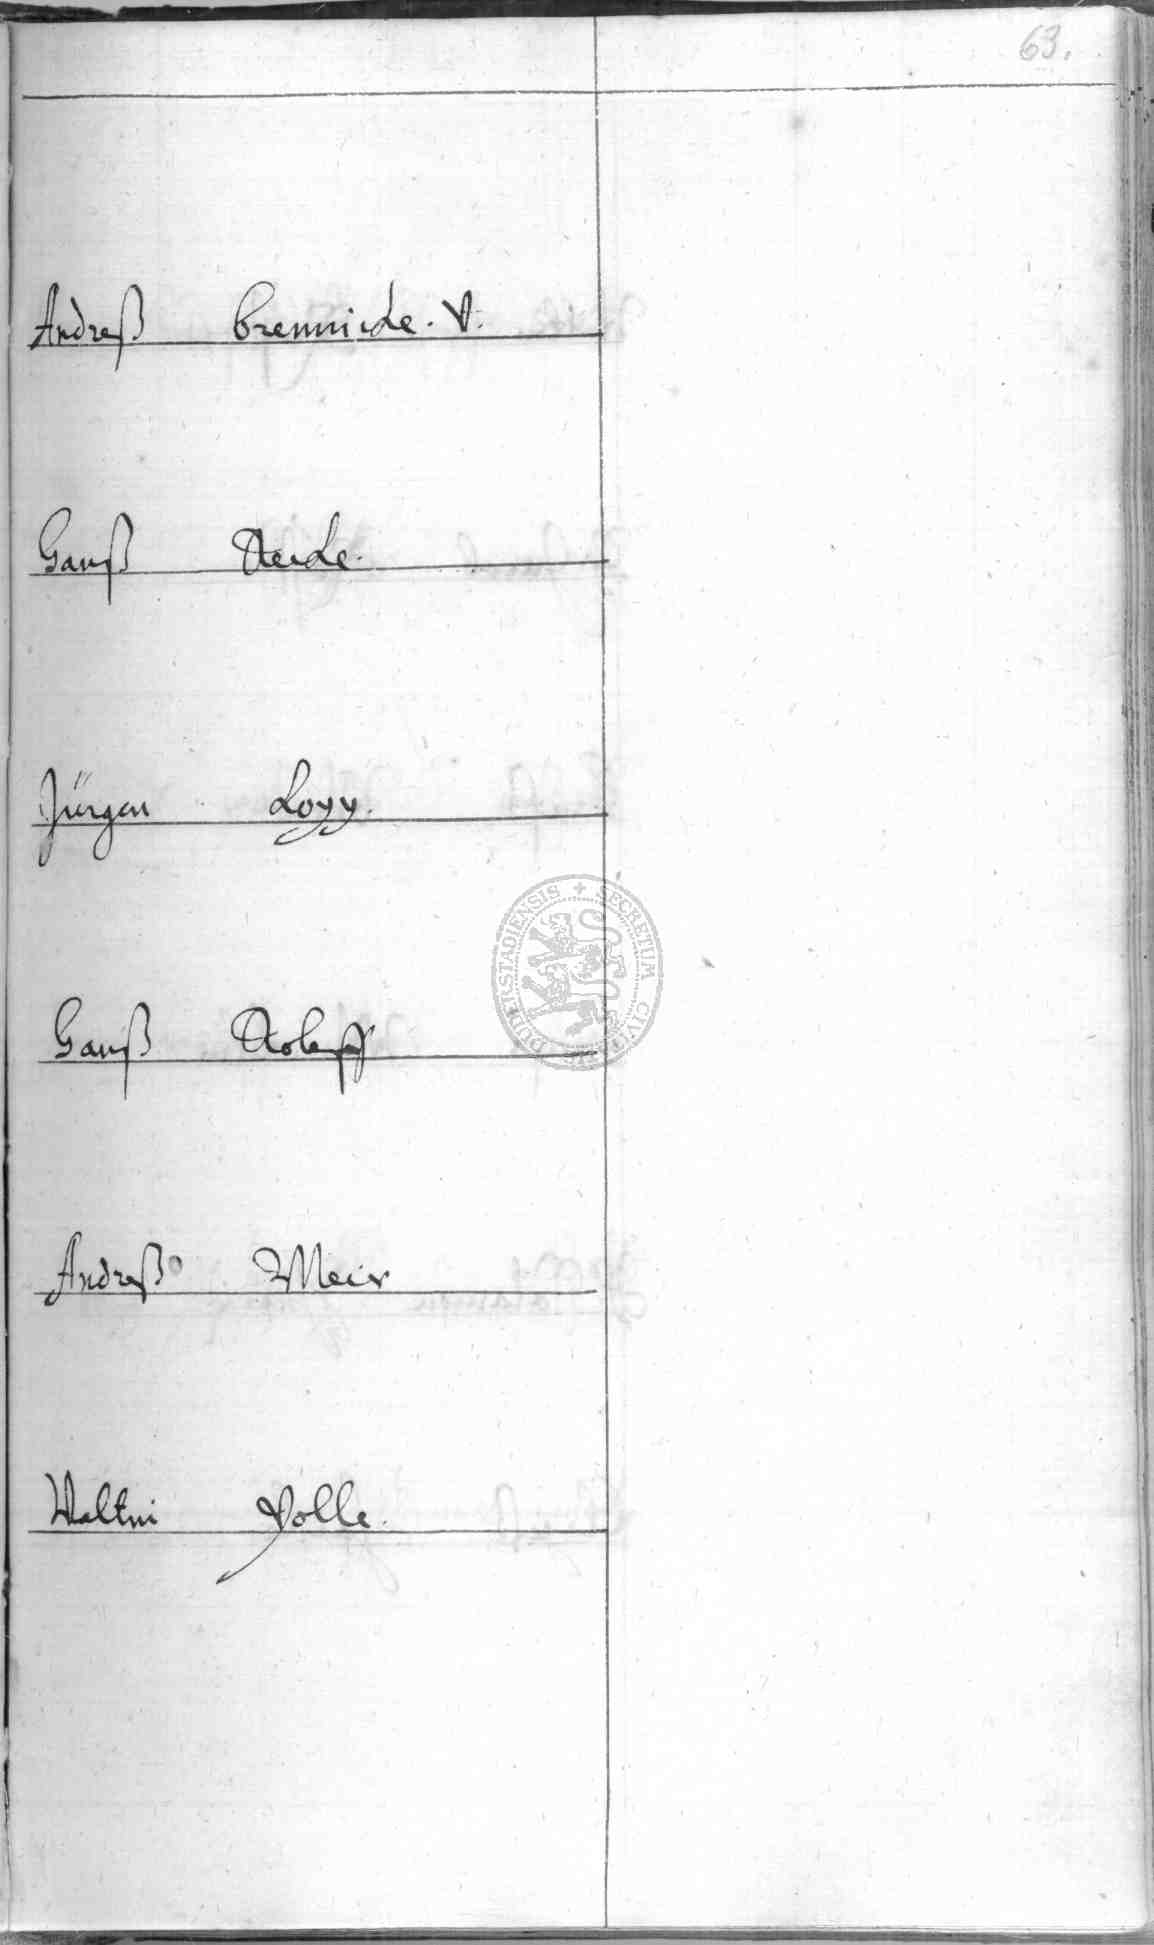 63.
Andreß Brennicke. V.
Hanß Recke.
Jürgen Loyy.
Hanß Roleff
Andreß Meir
Valtin Volle.
SECRETUM CIVITATIS DUDERSTADIENSIS